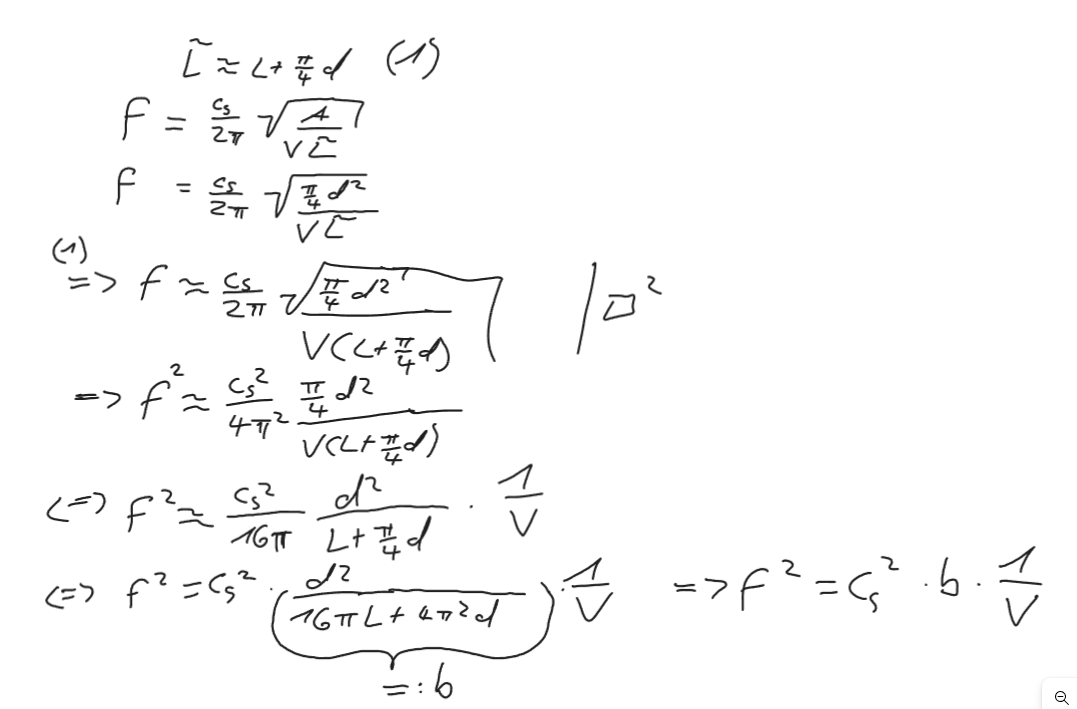 L̃ ≈ L + π/4 d (1)
f = c_s/2π √(A/(V L̃))
f = c_s/2π √((π/4 d²)/(V L̃))
(1)
=> f ≈ c_s/2π √((π/4 d²)/(V(L + π/4 d))) | □²
=> f² ≈ c_s²/4π² (π/4 d²)/(V(L + π/4 d))
<=> f² ≈ c_s²/16π d²/(L + π/4 d) · 1/V
<=> f² = c_s² · (d²/(16πL + 4π²d)) · 1/V => f² = c_s² · b · 1/V
=: b